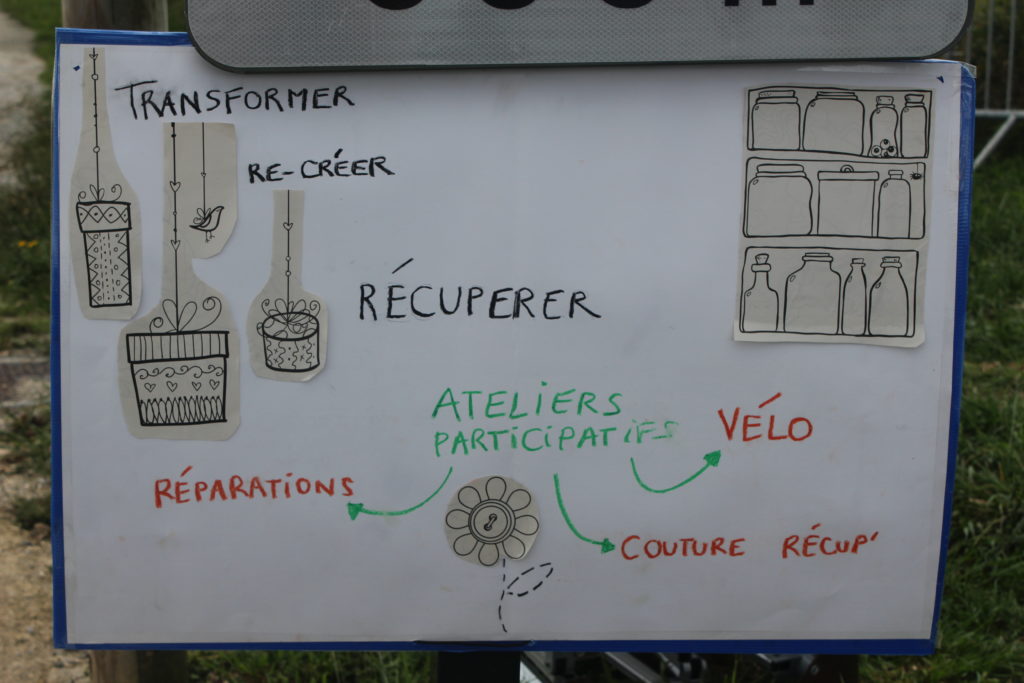 TRANSFORMER
RE-CRÉER
RÉCUPERER
ATELIERS
PARTICIPATIFS
VÉLO
RÉPARATIONS
COUTURE RÉCUP'